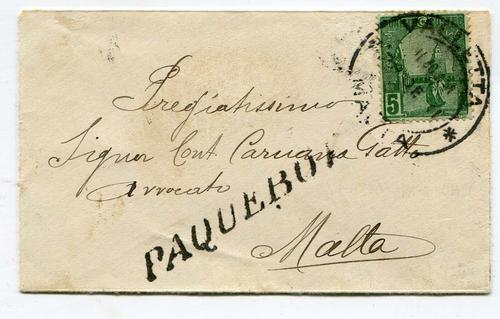 VALLETTA
MALTA
5
Pregiatissimo
Signor Cont Caruana Gatto
Avvocato
PAQUEBOT
Malta